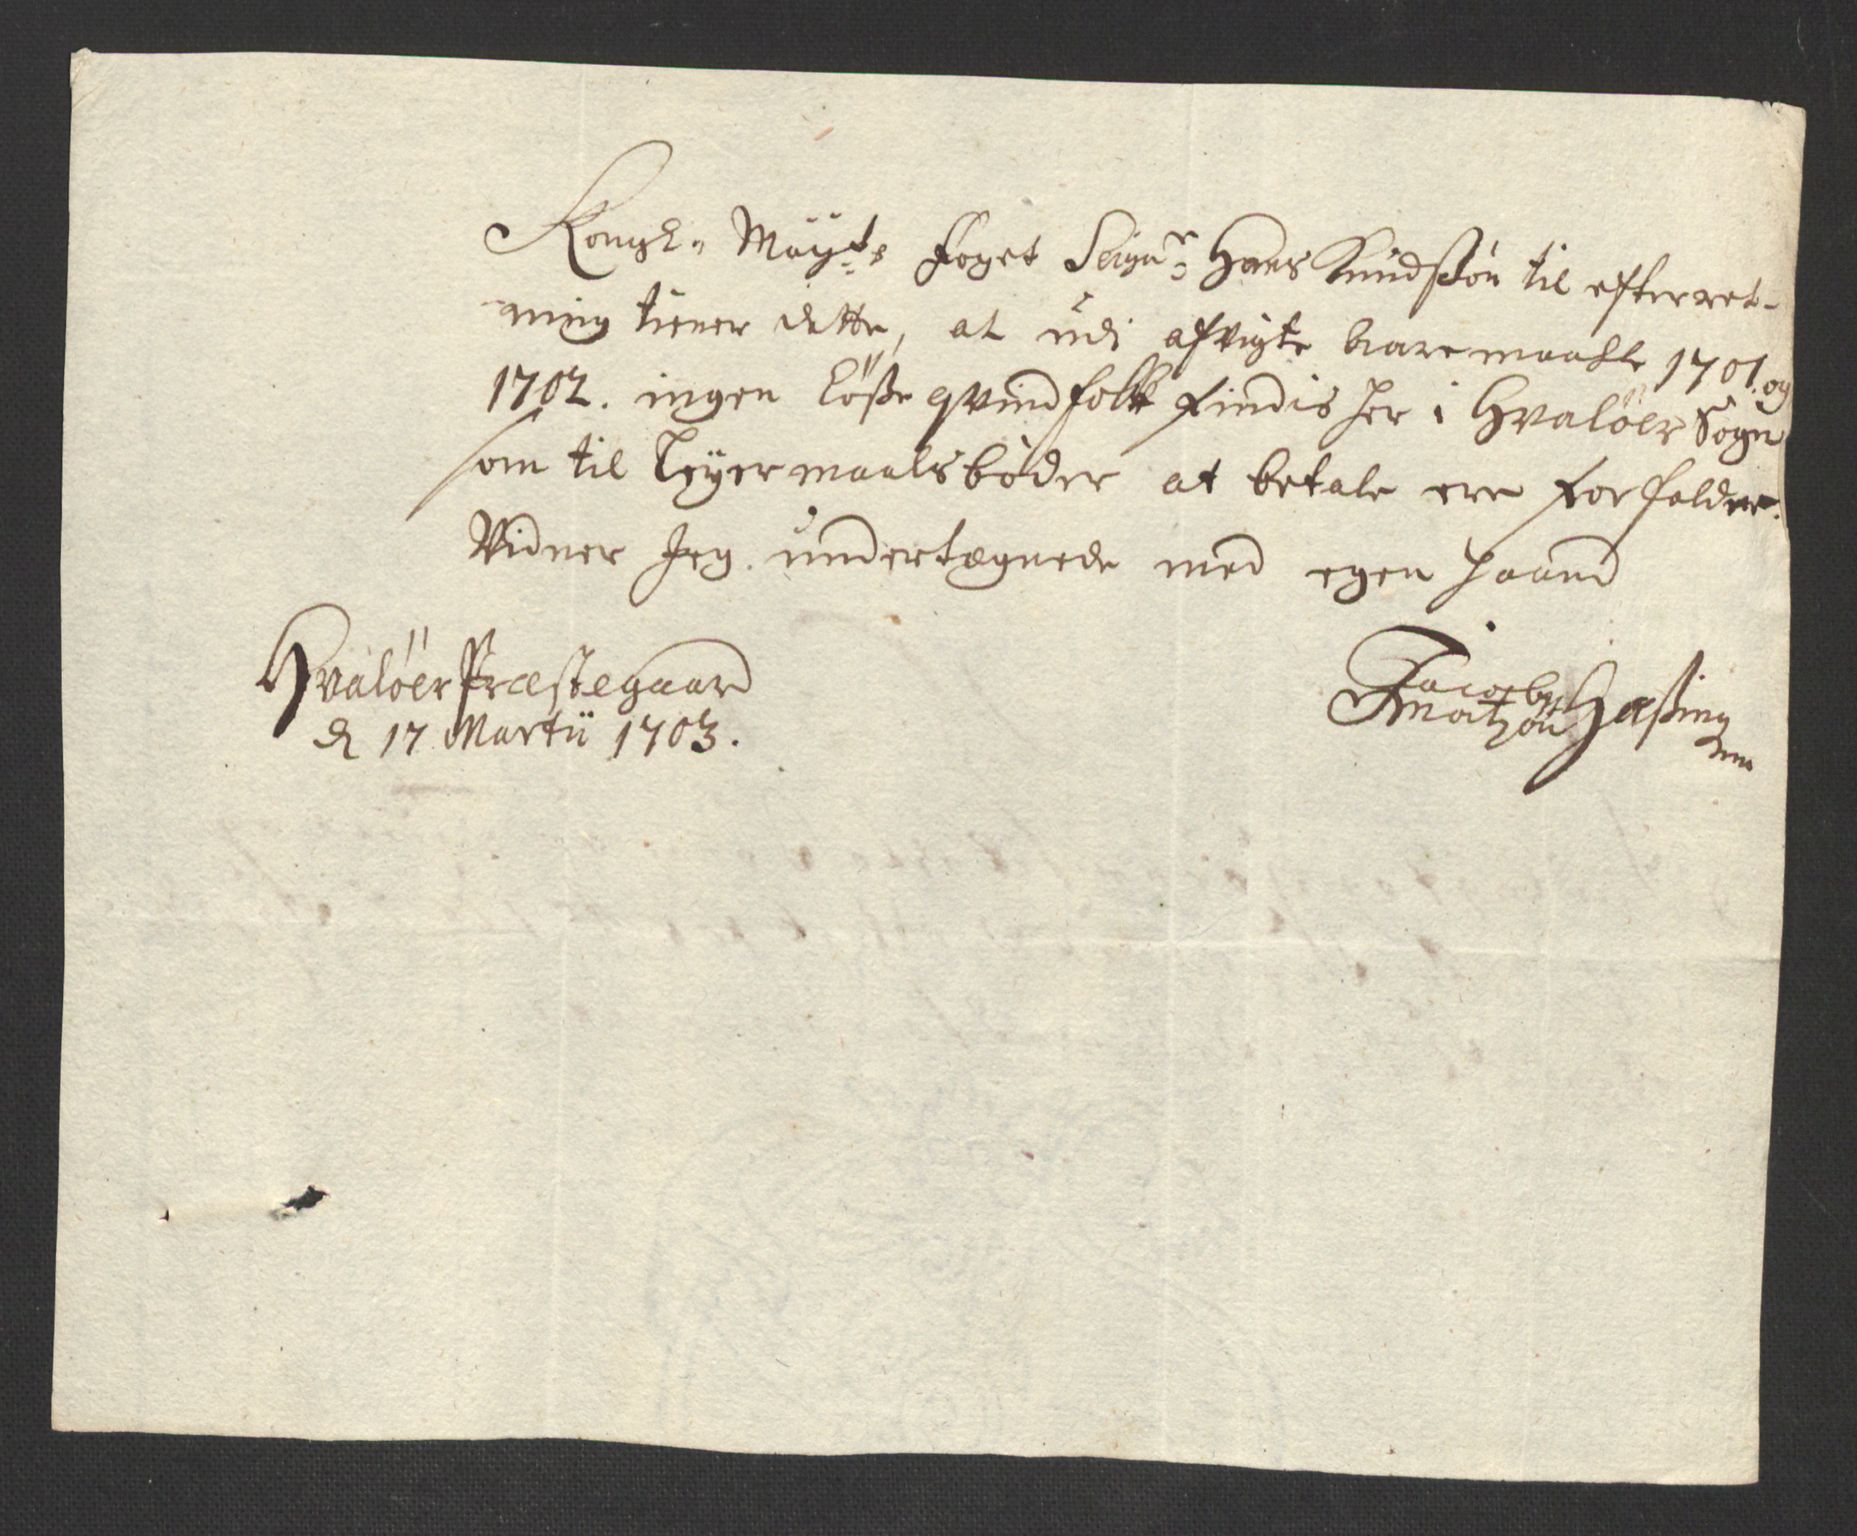 Kongl. Mayts Foget Seigr Hans Knudssön til efterret-
ning tiener dette, at udi afvigte 1701. og
1702. ingen löße qvindfolk findis her i Hvalöer Sogn
som til Leyermaalsböder at betale ere forfaldne.
Vidner Jeg undertægnede med egen haand
Hvalöer Præstegaard
d 17 Martii 1703.
Jacob Haßing